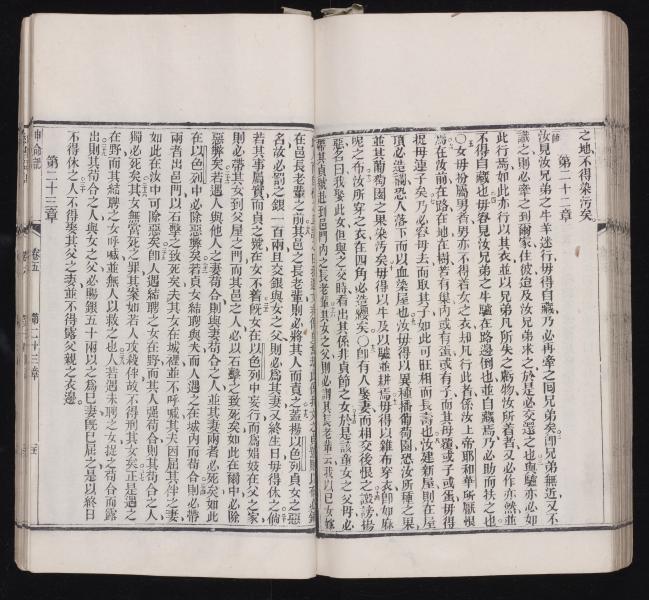 之地不得染污矣
第二十二章
汝見汝兄弟之牛羊迷行毋得自藏乃必再牽之回兄弟矣卽兄弟無近又不
識之則必牽之到爾家住彼迨及汝兄弟求之於是必交還之也與驢亦必如
此行焉如此亦行以其衣並以兄弟凡所失之虧物汝所着者又必作亦然並
不得自藏也毋容見汝兄弟之牛驢在路邊倒也並自藏焉乃必助而扶之也
○女毋扮屬男者男亦不得着女之衣却凡行此者係汝上帝耶和華所厭恨
焉在汝前在路在地在樹若有巢內或有蛋或有子而其母覆或子或蛋毋得
捉母連子矣乃必容母去而取其子如此可旺相而長壽也汝建新屋則在屋
頂必造欄恐人落下而以血染屋也汝毋得以異種播葡萄園恐汝所種之果
並其葡萄園之果染污矣毋得以牛及以驢並耕焉毋得以雜布穿衣卽如麻
呢之布汝所穿之衣在四角必造繸矣○卽有人娶妻而相交後恨之設謗揚
惡名曰我娶此女但與之交時看出其係非貞節之女於是該童女之父母必
帶其貞號到邑門內之長老輩其女之父則必謂其長老輩云我以已女嫁
在邑長老輩之前其邑之長老輩則必將其人而責之蓋揚以色列貞女之惡
名故必罰之銀一百兩且交銀與女之父則必爲其妻又終生日毋得休之倘
若其事屬實而貞之號在女不着旣女在以色列中妄行而爲娼妓在父之家
則必帶其女到父屋之門而其邑之人必以石擊之致死矣如此在爾中必除
惡弊矣若遇人與他人之妻苟合則與妻苟合之人並其妻兩者必死矣如此
以色列中必除惡弊矣若貞女結聘與夫而人遇之在城內而苟合則必帶
兩者出邑門以石擊之致死矣夫其女在城裡並不呼喊其夫因屈其伴之妻
如此在汝中可除惡矣卽人遇結聘之女在野而其人强苟合則其苟合之人
獨必死矣其女無當死之罪其案如若人攻殺伴故不得刑其女矣正是遇之
在野而其結聘之女呼喊並無人以救之也人若遇未聘之女捉之苟合而露
出則其苟合之人與女之父必賜銀五十兩以之爲已妻旣已屈之是以終日
不得休之人不得娶其父之妻並不得露父親之衣邊
第二十三章
申命記 卷五 第二十三章